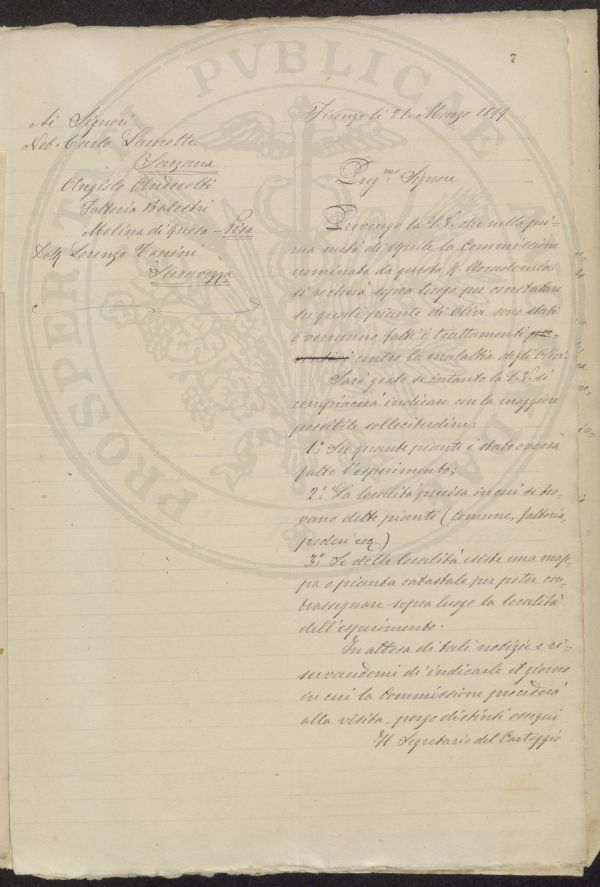 7
Ai Signori
Nob. Carlo
Sarzana
Angiolo Andreotti
Fattoria Balestri
Molina di Quosa - Pisa
Dott. Lorenzo
Seravezza
Firenze li 21 Marzo 1899
Preg.mo Signore
Prevengo la S. V. che nella pri-
ma metà di Aprile la Commissione
nominata da questa R. Accademia
si recherà sopra luogo per constatare
su quali piante di Olivi sono stati
o verranno fatti i trattamenti
contro la malattia degli Olivi.
Sarò grato se intanto la S. V. si
compiacerà indicare con la maggiore
possibile sollecitudine:
1° Su quante piante è stato o verrà
fatto l'esperimento;
2° La località precisa in cui si tro-
vano dette piante (Comune, fattoria,
poderi ecc)
3° Se delle località esiste una map-
pa o pianta catastale per poter con-
trassegnare sopra luogo la località
dell'esperimento.
In attesa di tali notizie e ri-
servandomi di indicarle il giorno
in cui la Commissione procederà
alla visita, porgo distinti ossequi
Il Segretario del Carteggio
PROSPERITATI PVBLICAE